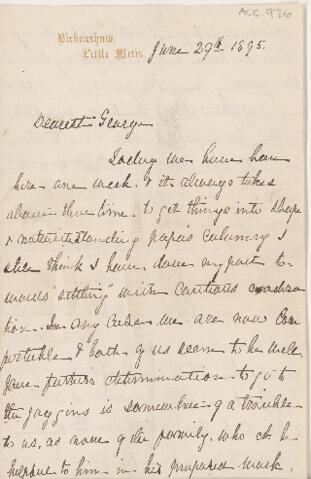 ACC. 976
Birkenshaw,
Little Metis.
June 29th 1895.
Dearest George
Today we have been
here one week. & it always takes
about this time to get things into shape
& notwithstanding papa's calumny I
still think I have done my part to-
wards "settling" with cautious modera
tion. In any case we are now com
fortable & both of us seem to be well.
Your father's determination to go to
the Joggins is somewhat of a trouble
to us, as none of the family who cd. be
helpful to him in his proposed work.